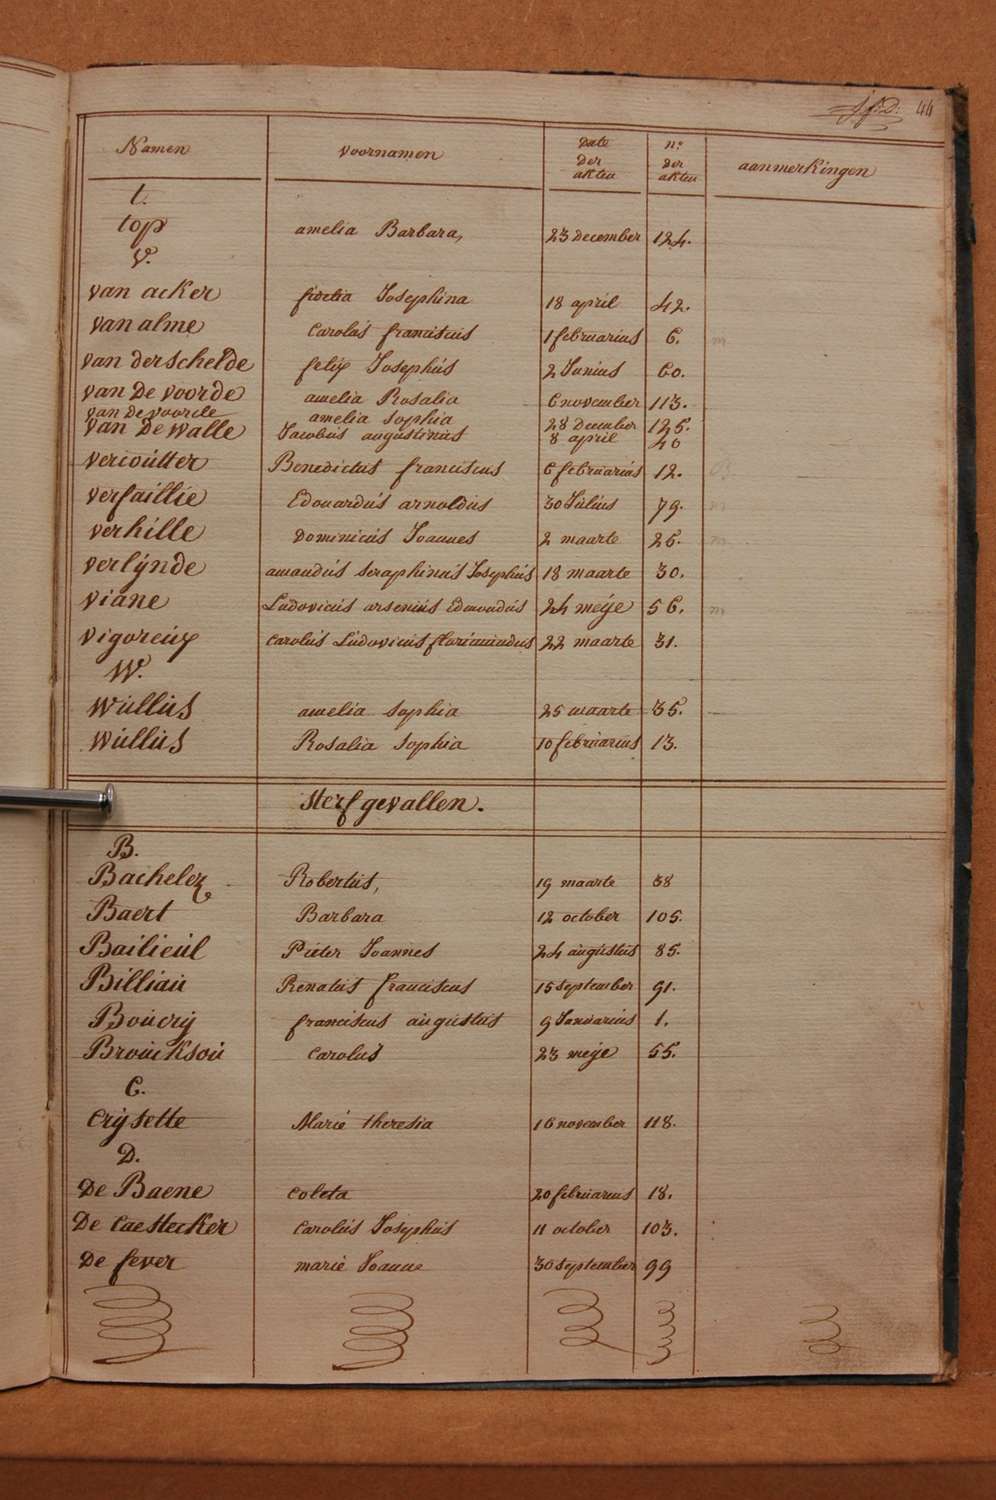 44
Namen voornamen Date Der akten n.º Der akten aanmerkingen
t.
top amelia Barbara, 23 December 124.
V.
van acker fidelia Josephina 18 april 42.
van alme Carolus franciscus 1 februarius 6. m
van Derschelde felix Josephus 2 Junius 60.
van De voorde amelia Rosalia 6 november 113.
van De voorde amelia sophia 28 December 125.
van De walle Jacobus augustinus 8 april 40
vercoutter Benedictus franciscus 6 februarius 12.
verfaillie Edouardus arnoldus 30 Julius 79. m
verhille Dominicus Joannes 2 maarte 25. m
verlynde amandus seraphinus Josephus 18 maarte 30.
viane Ludovicus arsenius Edmondus 24 meye 56. m
vigoreux Carolus Ludovicus florimundus 22 maarte 31.
W.
Wullus amelia sophia 25 maarte 35.
Wullus Rosalia sophia 10 februarius 13.
sterfgevallen.
B.
Bachelez Robertus, 19 maarte 38
Baert Barbara 12 october 105.
Bailieul Pieter Joannes 24 augustus 85.
Billiau Renatus franciscus 15 september 91.
Boucry franciscus augustus 9 Januarius 1.
Brouckson Carolus 23 meye 55.
C.
Crysette Marie theresia 16 november 118.
D.
De Baene Coleta 20 februarius 18.
De Caestecker Carolus Josephus 11 october 103.
De fever marie Joanne 30 september 99